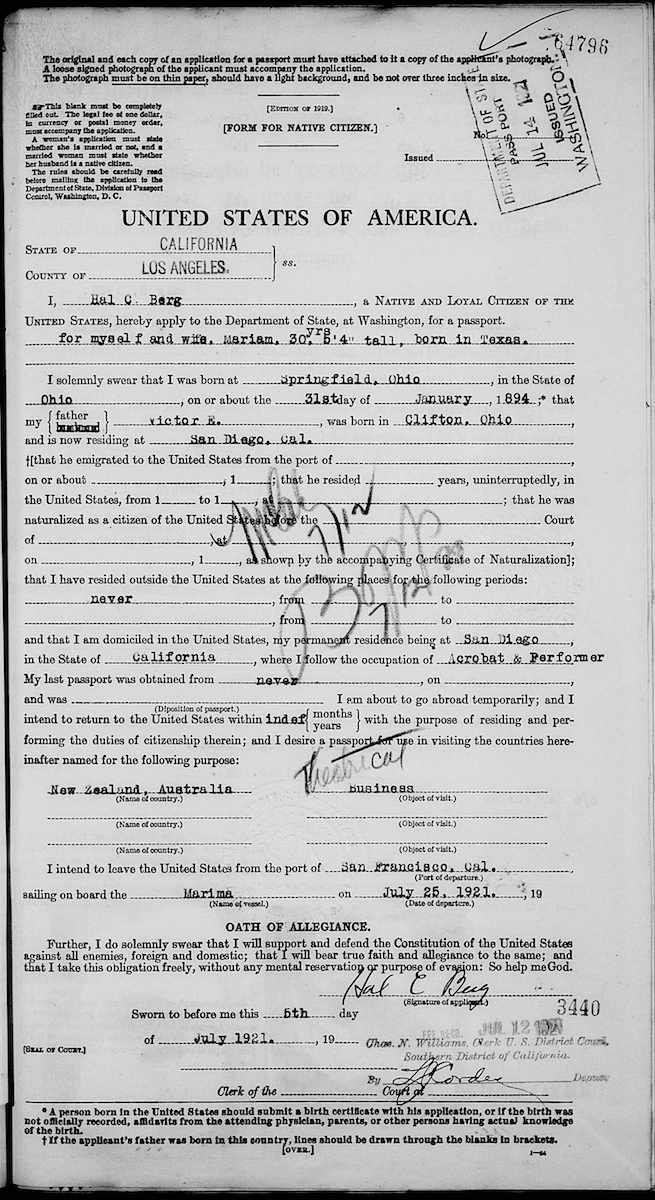 64796
The original and each copy of an application for a passport must have attached to it a copy of the applicant's photograph.
A loose signed photograph of the applicant must accompany the application.
The photograph must be on thin paper, should have a light background, and be not over three inches in size.
This blank must be completely
filled out. The legal fee of one dollar,
in currency or postal money order,
must accompany the application.
A woman's application must state
whether she is married or not, and a
married woman must state whether
her husband is a native citizen.
The rules should be carefully read
before mailing the application to the
Department of State, Division of Passport
Control, Washington, D. C.
[EDITION OF 1919.]
[FORM FOR NATIVE CITIZEN.]
No.
Issued
DEPARTMENT OF STATE
PASSPORT
JUL 14 1921
ISSUED
WASHINGTON
UNITED STATES OF AMERICA.
STATE OF CALIFORNIA
COUNTY OF LOS ANGELES.
ss.
I, Hal C. Berg, a NATIVE AND LOYAL CITIZEN OF THE
UNITED STATES, hereby apply to the Department of State, at Washington, for a passport.
for myself and wife, Mariam, 30 yrs 5'4" tall, born in Texas.
I solemnly swear that I was born at Springfield, Ohio, in the State of
Ohio, on or about the 31st day of January, 1894;* that
my { father husband } Victor E., was born in Clifton, Ohio,
and is now residing at San Diego, Cal.
†[that he emigrated to the United States from the port of ,
on or about , 1 ; that he resided years, uninterruptedly, in
the United States, from 1 to 1 , at ; that he was
naturalized as a citizen of the United States before the Court
of , at , ,
on , 1 , as shown by the accompanying Certificate of Naturalization];
7/12
7/12/20
that I have resided outside the United States at the following places for the following periods:
never, from to
, from to
and that I am domiciled in the United States, my permanent residence being at San Diego,
in the State of California, where I follow the occupation of Acrobat & Performer
My last passport was obtained from never, on ,
and was I am about to go abroad temporarily; and I
(Diposition of passport.)
intend to return to the United States within indef { months years } with the purpose of residing and per-
forming the duties of citizenship therein; and I desire a passport for use in visiting the countries here-
inafter named for the following purpose:
Theatrical
New Zealand, Australia Business
(Name of country.) (Object of visit.)
(Name of country.) (Object of visit.)
(Name of country.) (Object of visit.)
I intend to leave the United States from the port of San Francisco, Cal.
(Port of departure.)
sailing on board the Marima on July 25, 1921., 19
(Name of vessel.) (Date of departure.)
OATH OF ALLEGIANCE.
Further, I do solemnly swear that I will support and defend the Constitution of the United States
against all enemies, foreign and domestic; that I will bear true faith and allegiance to the same; and
that I take this obligation freely, without any mental reservation or purpose of evasion: So help me God.
Hal C Berg
(Signature of applicant.)
3440
Sworn to before me this 5th day
FEE RECD. JUL 12 1921
of July 1921., 19
Chas. N. Williams, Clerk U. S. District Court,
[SEAL OF COURT.]
Southern District of California.
By Deputy
Clerk of the Court at
* A person born in the United States should submit a birth certificate with his application, or if the birth was
not officially recorded, affidavits from the attending physician, parents, or other persons having actual knowledge
of the birth.
† If the applicant's father was born in this country, lines should be drawn through the blanks in brackets.
[OVER.]